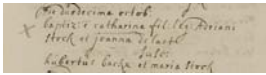 Die duodecima octob.
baptiz: ē catharina fil: leg: Adriani
Stock et joanna de laet
Susc:
hubertus backx et maria Stock